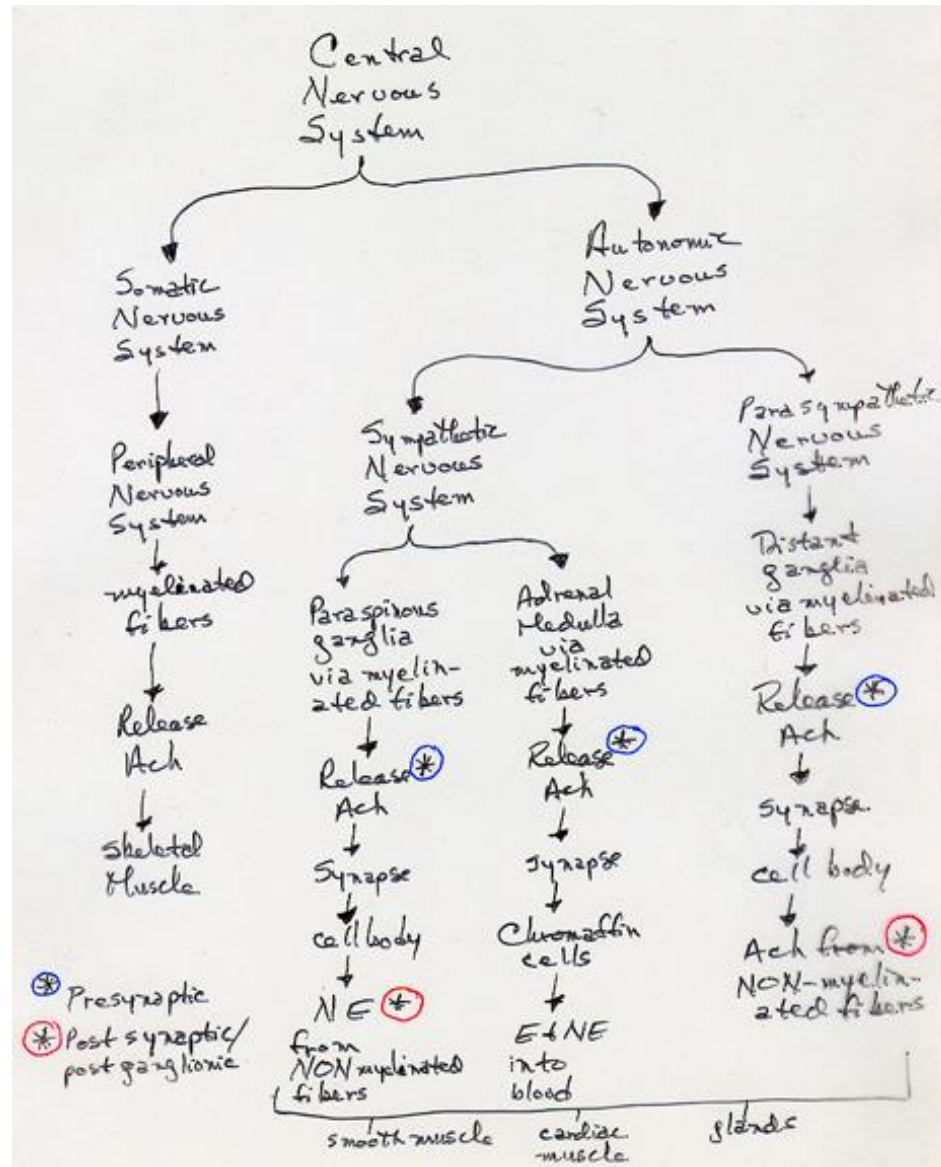 Central
Nervous
System
Somatic
Nervous
System
Peripheral
Nervous
System
myelinated
fibers
Release
Ach
Skeletal
Muscle
Autonomic
Nervous
System
Sympathetic
Nervous
System
Paraspinous
ganglia
via myelin-
ated fibers
Release *
Ach
Synapse
cell body
NE *
from
NON myelinated
fibers
Adrenal
Medulla
via
myelinated
fibers
Release *
Ach
Synapse
Chromaffin
cells
E + NE
into
blood
Parasympathetic
Nervous
System
Distant
ganglia
via myelinated
fibers
Release *
Ach
Synapse
cell body
Ach from *
NON-myelin-
ated fibers
* Presynaptic
* Post synaptic/
post ganglionic
smooth muscle
cardiac
muscle
glands